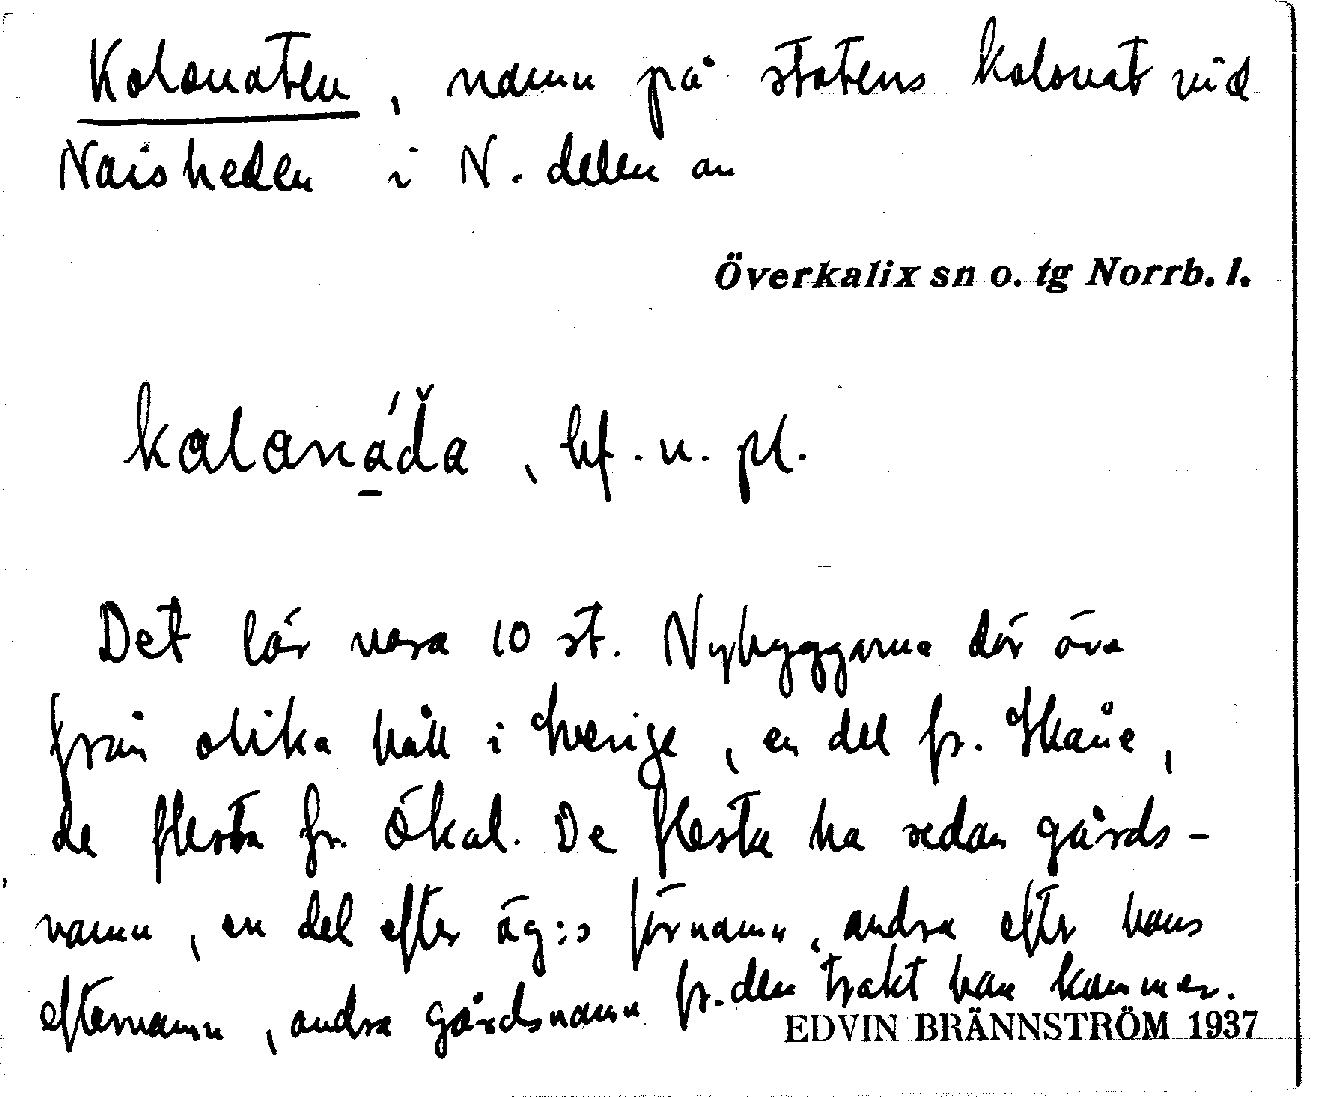 Kolonaten, namn på statens kolonat vid
Naisheden i N. delen av
Överkalix sn o. tg Norrb. l.
kalaná̱ďa, bf. n. pl.
Det lär vara 10 st. Nybyggarna där äro
från olika håll i Sverige, en del fr. Skåne,
de flesta fr. Ökal. De flesta ha redan gårds-
namn, en del efter äg:s förnamn, andra efter hans
efternamn, andra gårdsnamn fr. den trakt han kommer.
EDVIN BRÄNNSTRÖM 1937